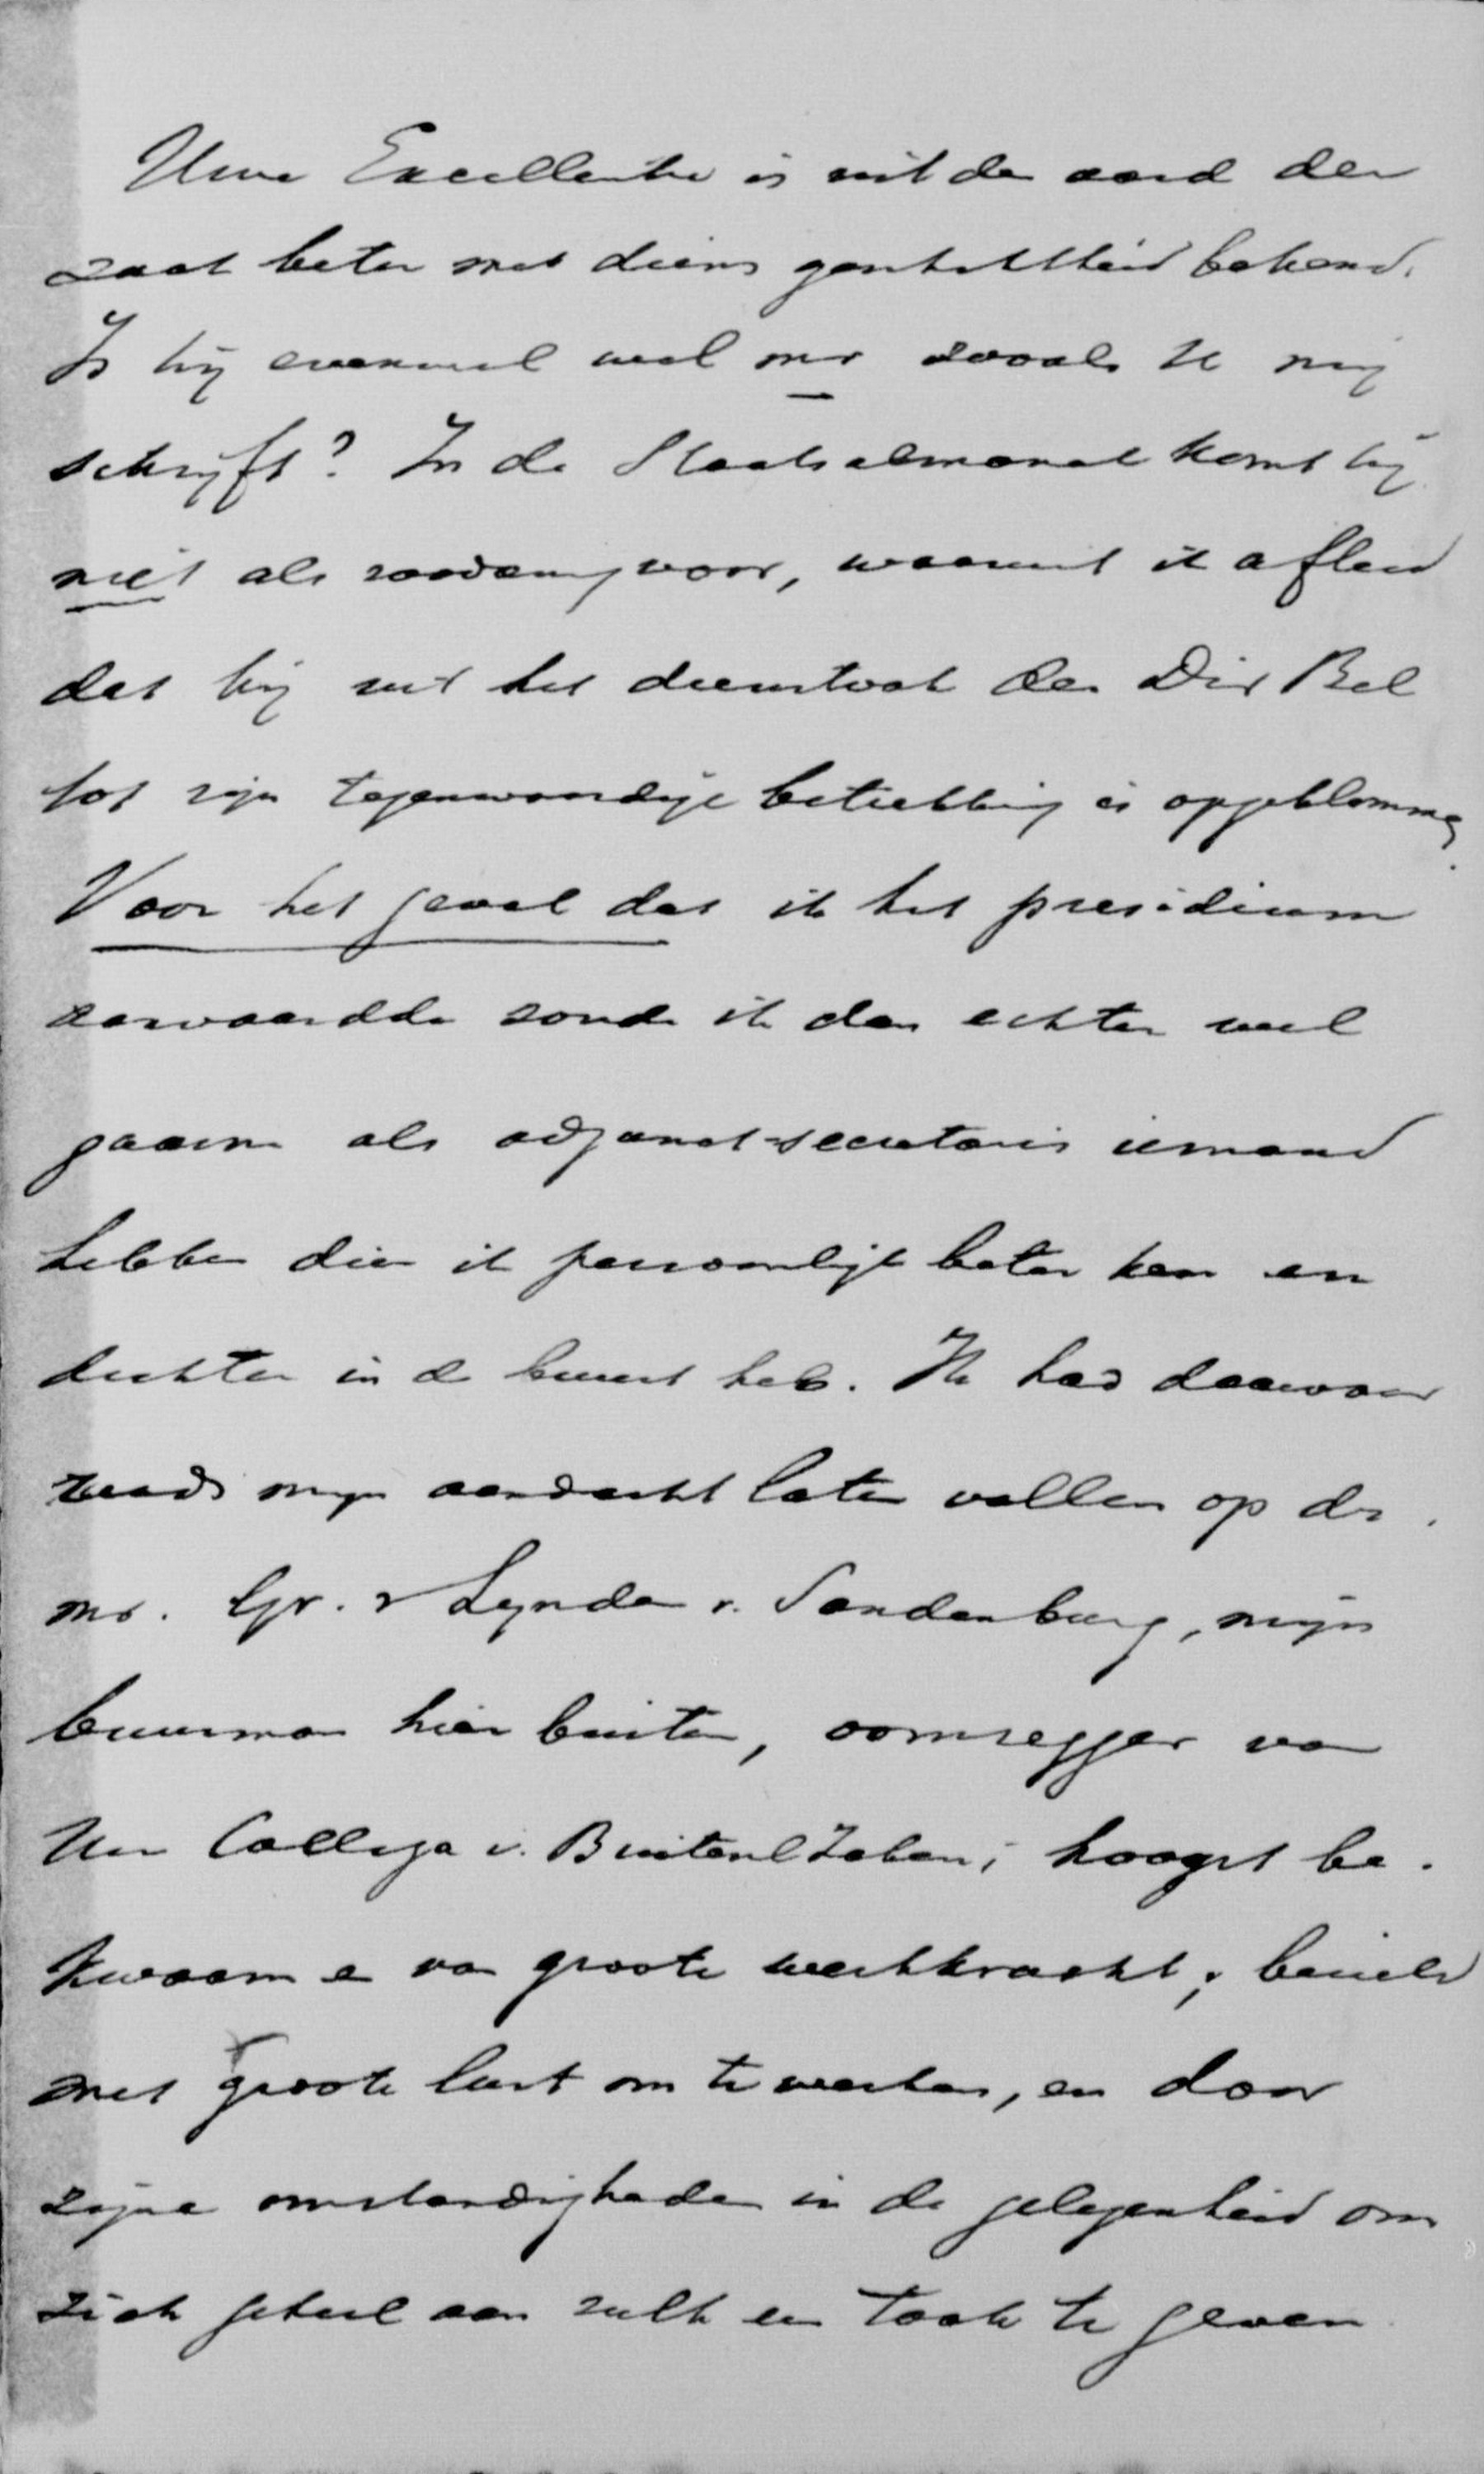 Uwe Excellentie is uit den aard der
zaak beter met diens geschiktheid bekend.
Is hij evenwel wel mr zooals U mij
schrijft? In de Staatsalmanak komt hij
niet als zoodanig voor, waaruit ik afleid
dat hij uit het dienstvak der Dir Bel
tot zijn tegenwoordige betrekking is opgeklommen.
Voor het geval dat ik het presidium
aanvaardde zoude ik dan echter wel
gaarne als adjunct-secretaris iemand
hebben dien ik persoonlijk beter ken en
dichter in de buurt heb. Ik had daarvoor
reeds mijn aandacht laten vallen op dr.
mr. Gr. v Lynden v. Sandenburg, mijn
buurman hier buiten, oomzegger van
Uw Collega v. Buitenl Zaken; hoogst be-
kwaam en van groote werkkracht; bezield
met groote lust om te werken, en door
zijne omstandigheden in de gelegenheid om
zich geheel aan zulk een taak te geven